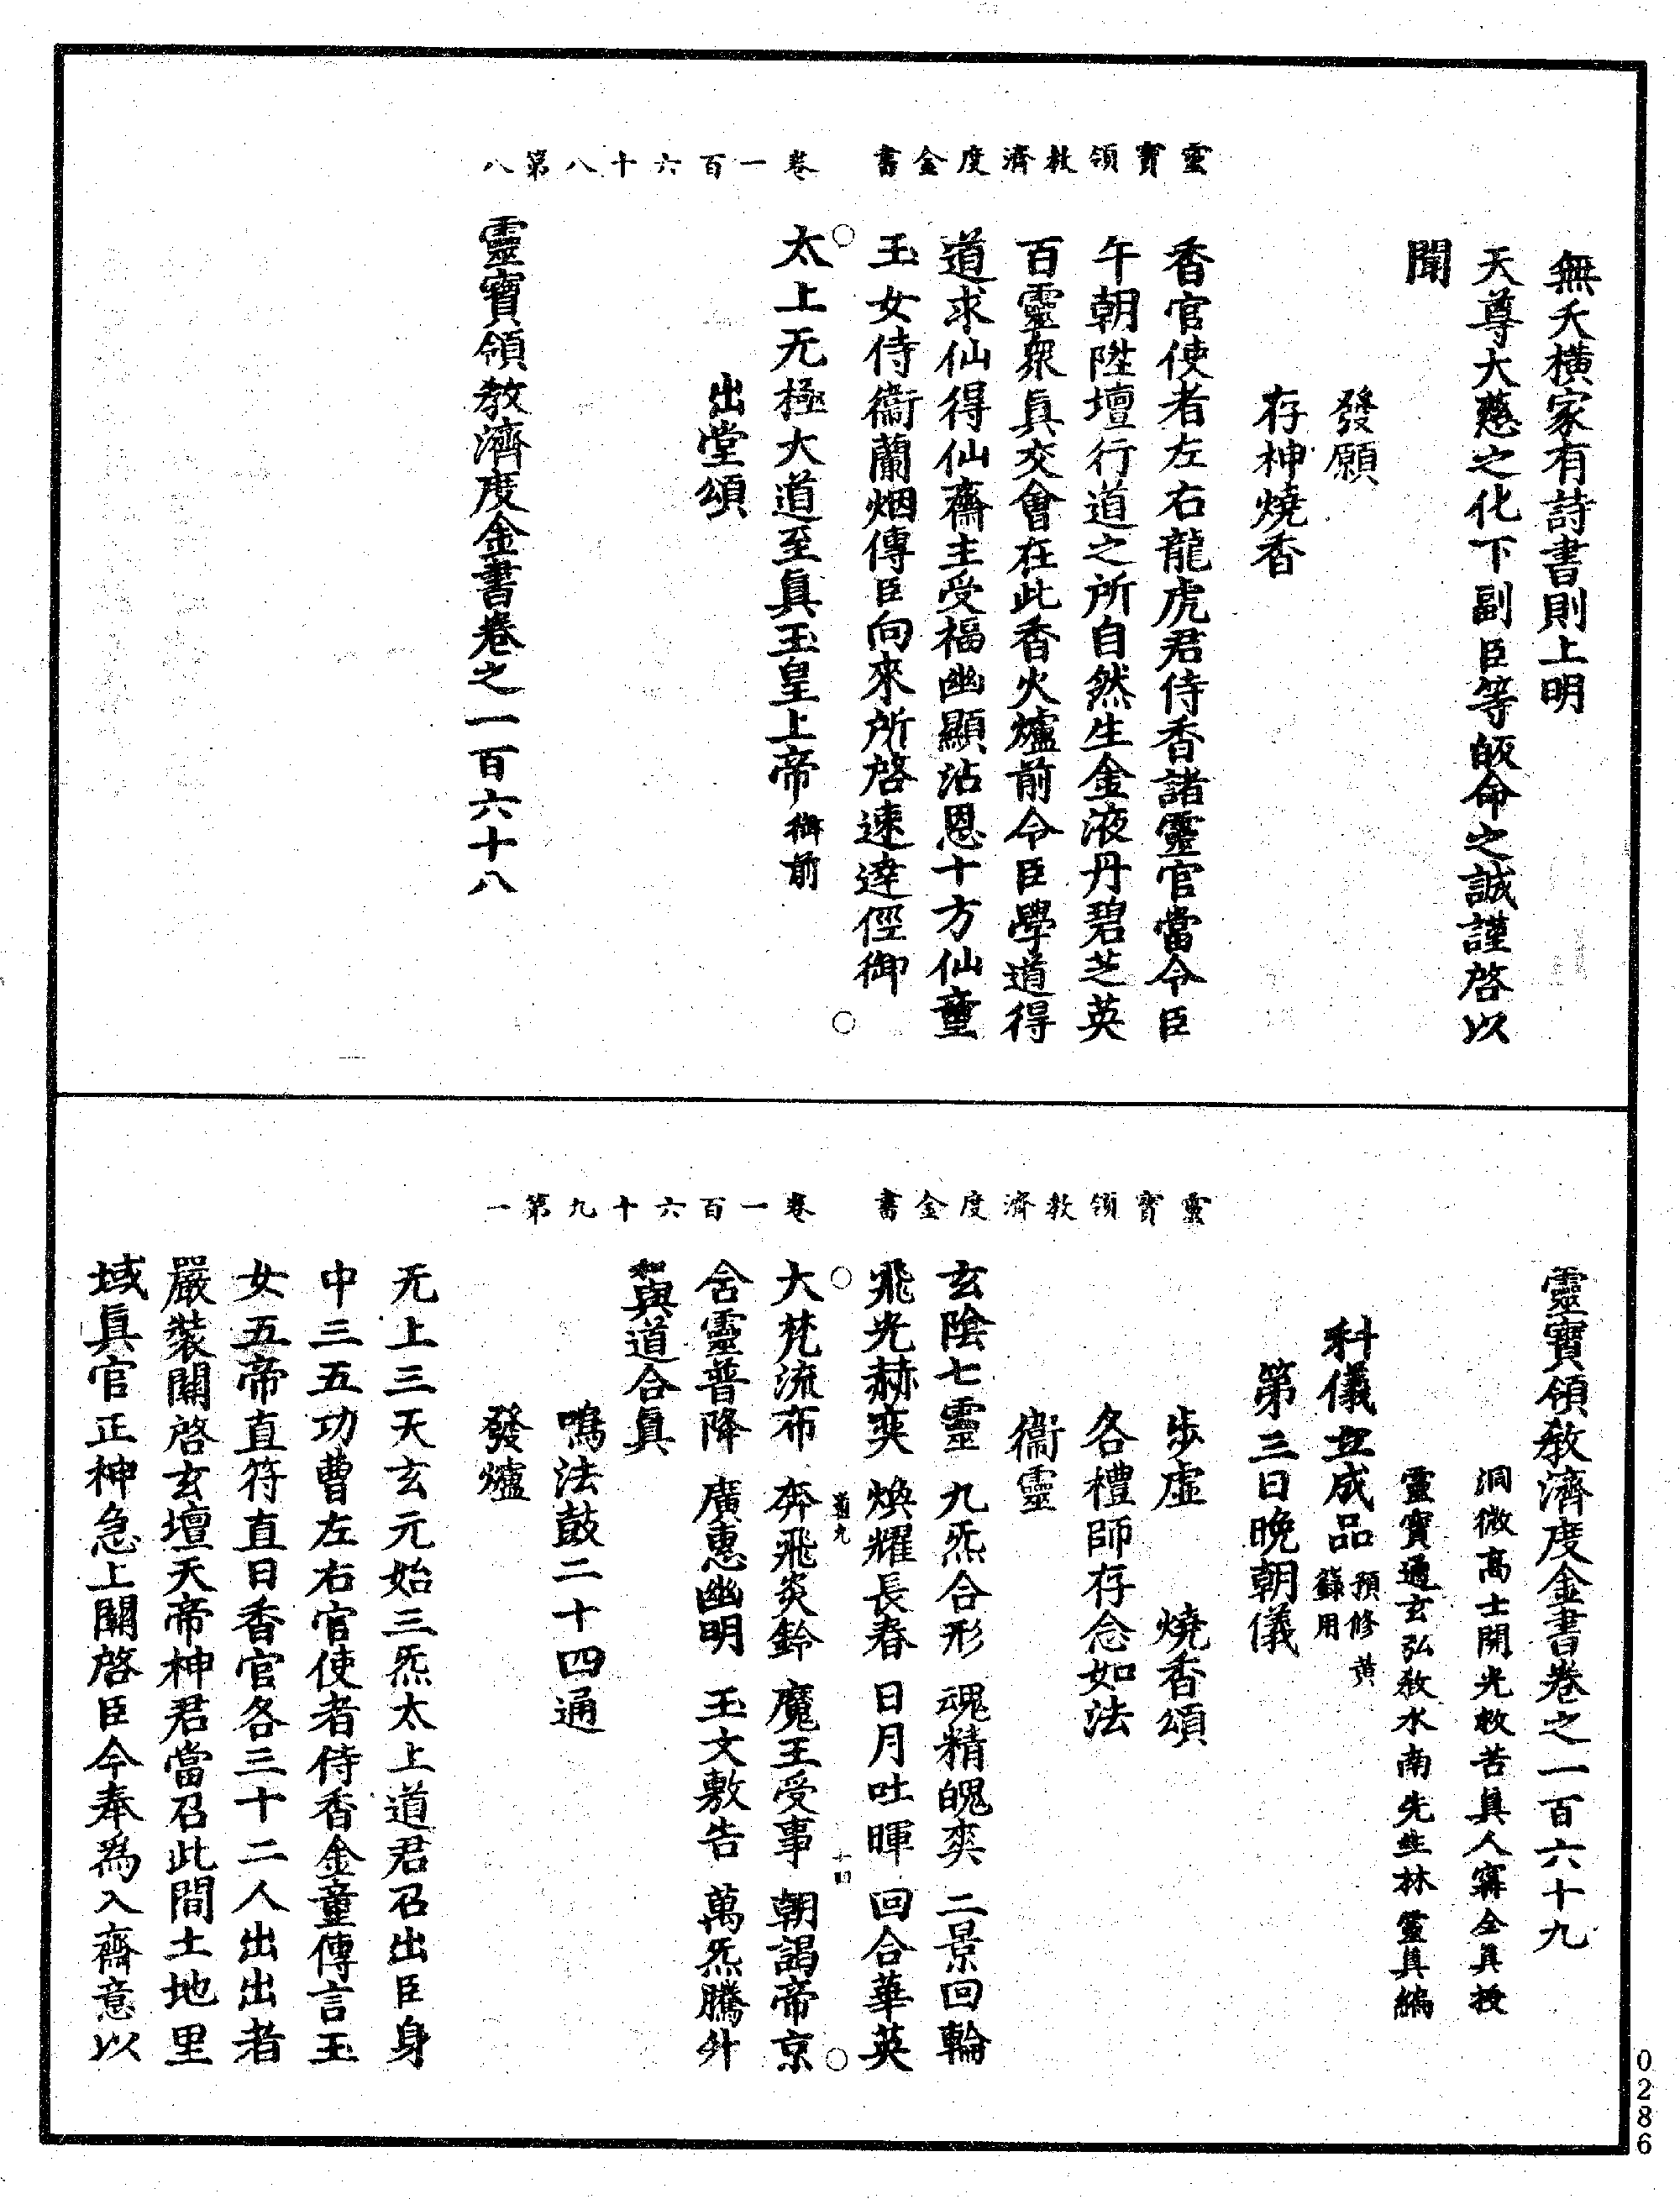 靈寶領教濟度金書　卷一百六十八第八
無夭橫家有詩書則上明
天尊大慈之化下副臣等皈命之誠謹啓以
聞
發願
存神燒香
香官使者左右龍虎君侍香諸靈官當令臣
午朝陞壇行道之所自然生金液丹碧芝英
百靈衆眞交會在此香火爐前令臣學道得
道求仙得仙齋主受福幽顯沾恩十方仙童
玉女侍衞蘭烟傳臣向來所啓速達徑御
太上无極大道至眞玉皇上帝御前
出堂頌
靈寶領教濟度金書卷之一百六十八
靈寶領教濟度金書　卷一百六十九第一
靈寶領教濟度金書卷之一百六十九
洞微高士開光救苦眞人甯全眞授
靈寶通玄弘教水南先生林靈眞編
科儀立成品預修黃籙用
第三日晚朝儀
步虛　燒香頌
各禮師存念如法
衞靈
玄陰七靈　九炁合形　魂精魄爽　二景回輪
飛光赫奕　煥耀長春　日月吐暉　回合華英
大梵流布　奔飛炎鈴　魔王受事　朝謁帝京
含靈普降　廣惠幽明　玉文敷告　萬炁騰升
和與道合眞
鳴法鼓二十四通
發爐
无上三天玄元始三炁太上道君召出臣身
中三五功曹左右官使者侍香金童傳言玉
女五帝直符直日香官各三十二人出出者
嚴裝關啓玄壇天帝神君當召此間土地里
域眞官正神急上關啓臣今奉爲入齋意以
0286